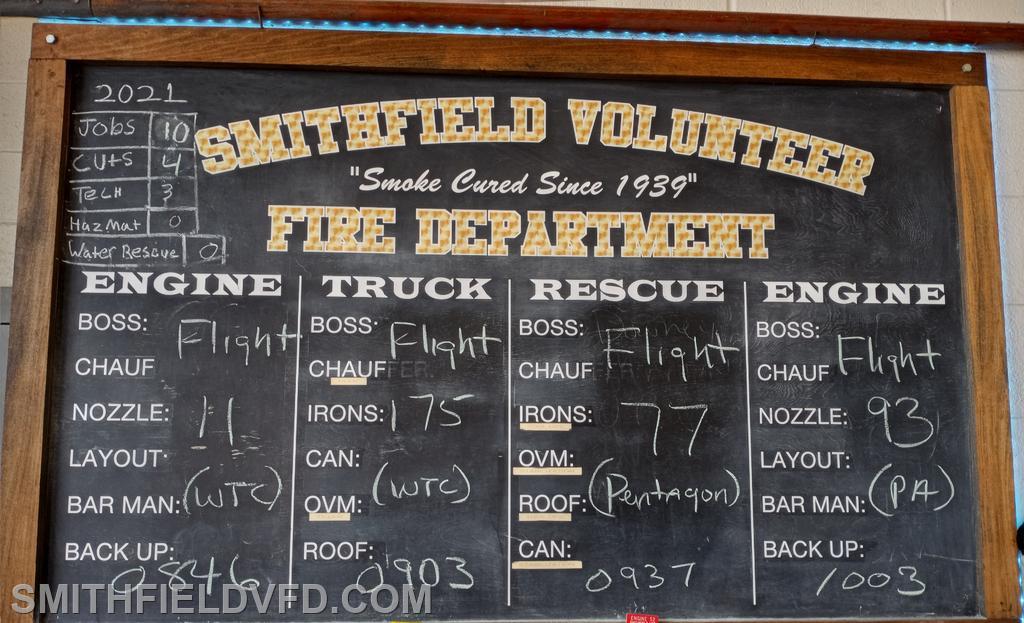 2021
Jobs 10
CUTS 4
TECH 3
HazMat 0
Water Rescue 0
SMITHFIELD VOLUNTEER
"Smoke Cured Since 1939"
FIRE DEPARTMENT
ENGINE
BOSS:
Flight
CHAUF
NOZZLE: 11
LAYOUT:
BAR MAN: (WTC)
BACK UP:
0846
TRUCK
BOSS:
Flight
CHAUFFER
IRONS: 175
CAN:
OVM: (WTC)
ROOF:
0903
RESCUE
BOSS:
Flight
CHAUFFER
IRONS: 77
OVM:
ROOF: (Pentagon)
CAN:
0937
ENGINE
BOSS:
Flight
CHAUF
NOZZLE: 93
LAYOUT:
BAR MAN: (PA)
BACK UP:
1003
SMITHFIELDVFD.COM